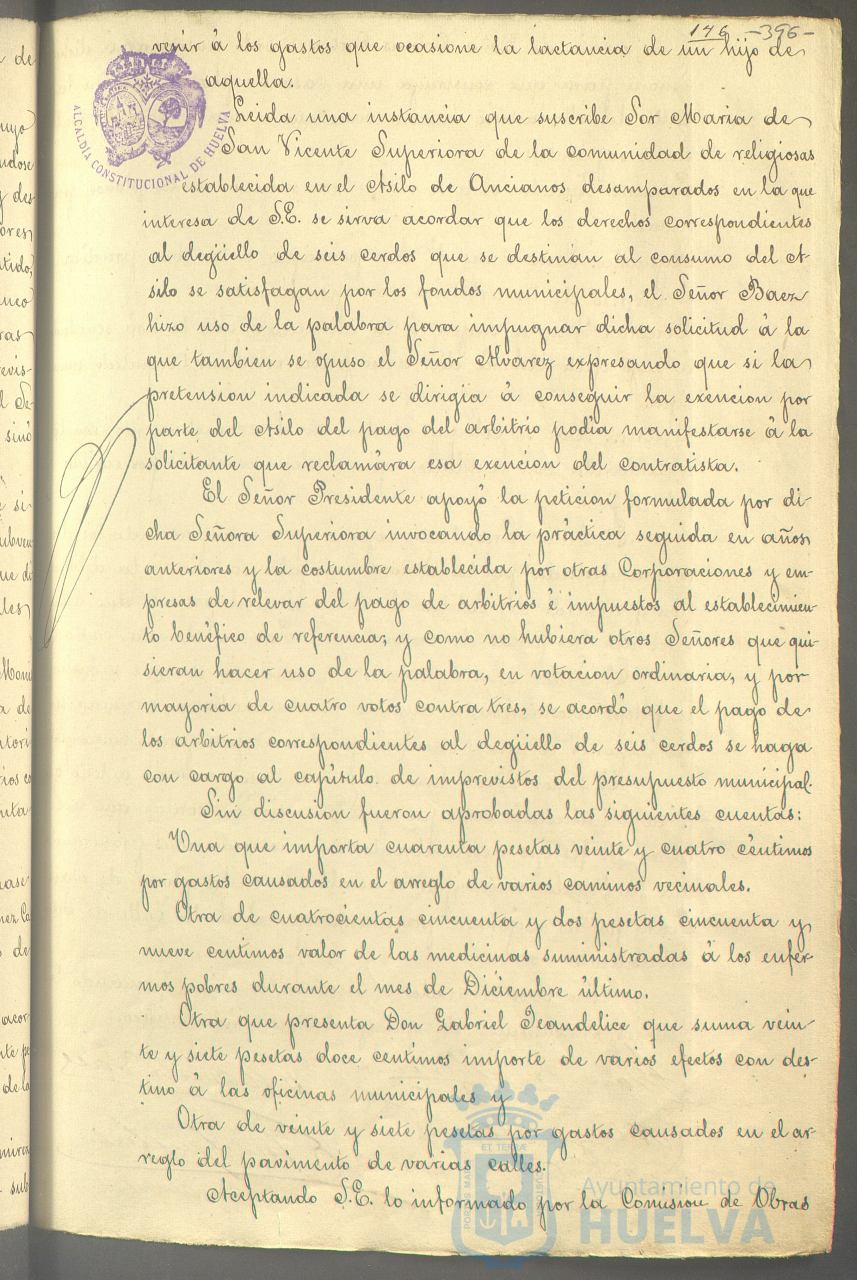 146 -396-
venir à los gastos que ocasione la lactancia de un hijo de
aquella.
Leida una instancia que suscribe Sor Maria de
San Vicente Superiora de la comunidad de religiosas
establecida en el Asilo de Ancianos desamparados en la que
interesa de S.E. se sirva acordar que los derechos correspondientes
al degüello de seis cerdos que se destinan al consumo del A-
silo se satisfagan por los fondos municipales, el Señor Baez
hizo uso de la palabra para impugnar dicha solicitud à la
que tambien se opuso el Señor Alvarez expresando que si la
pretension indicada se dirigia à conseguir la exencion por
parte del Asilo del pago del arbitrio podia manifestarse à la
solicitante que reclamàra esa exencion del contratista.
El Señor Presidente apoyó la peticion formulada por di
cha Señora Superiora invocando la pràctica seguida en años
anteriores y la costumbre establecida por otras Corporaciones y em-
presas de relevar del pago de arbitrios é impuestos al establecimien-
to benéfico de referencia; y como no hubiera otros Señores que qui-
sieran hacer uso de la palabra, en votacion ordinaria, y por
mayoria de cuatro votos contra tres, se acordó que el pago de
los arbitrios correspondientes al degüello de seis cerdos se haga
con cargo al capítulo de imprevistos del presupuesto municipal.
Sin discusion fueron aprobadas las siguientes cuentas:
Una que importa cuarenta pesetas veinte y cuatro céntimos
por gastos causados en el arreglo de varios caminos vecinales.
Otra de cuatrocientas cincuenta y dos pesetas cincuenta y
nueve centimos valor de las medicinas suministradas à los enfer-
mos pobres durante el mes de Diciembre último.
Otra que presenta Don Gabriel Jeandelice que suma vein-
te y siete pesetas doce centimos importe de varios efectos con des-
tino à las oficinas municipales y
Otra de veinte y siete pesetas por gastos causados en el ar-
reglo del pavimento de varias calles.
Aceptando S.E. lo informado por la Comision de Obras
ALCALDIA CONSTITUCIONAL DE HUELVA
Ayuntamiento de
HUELVA